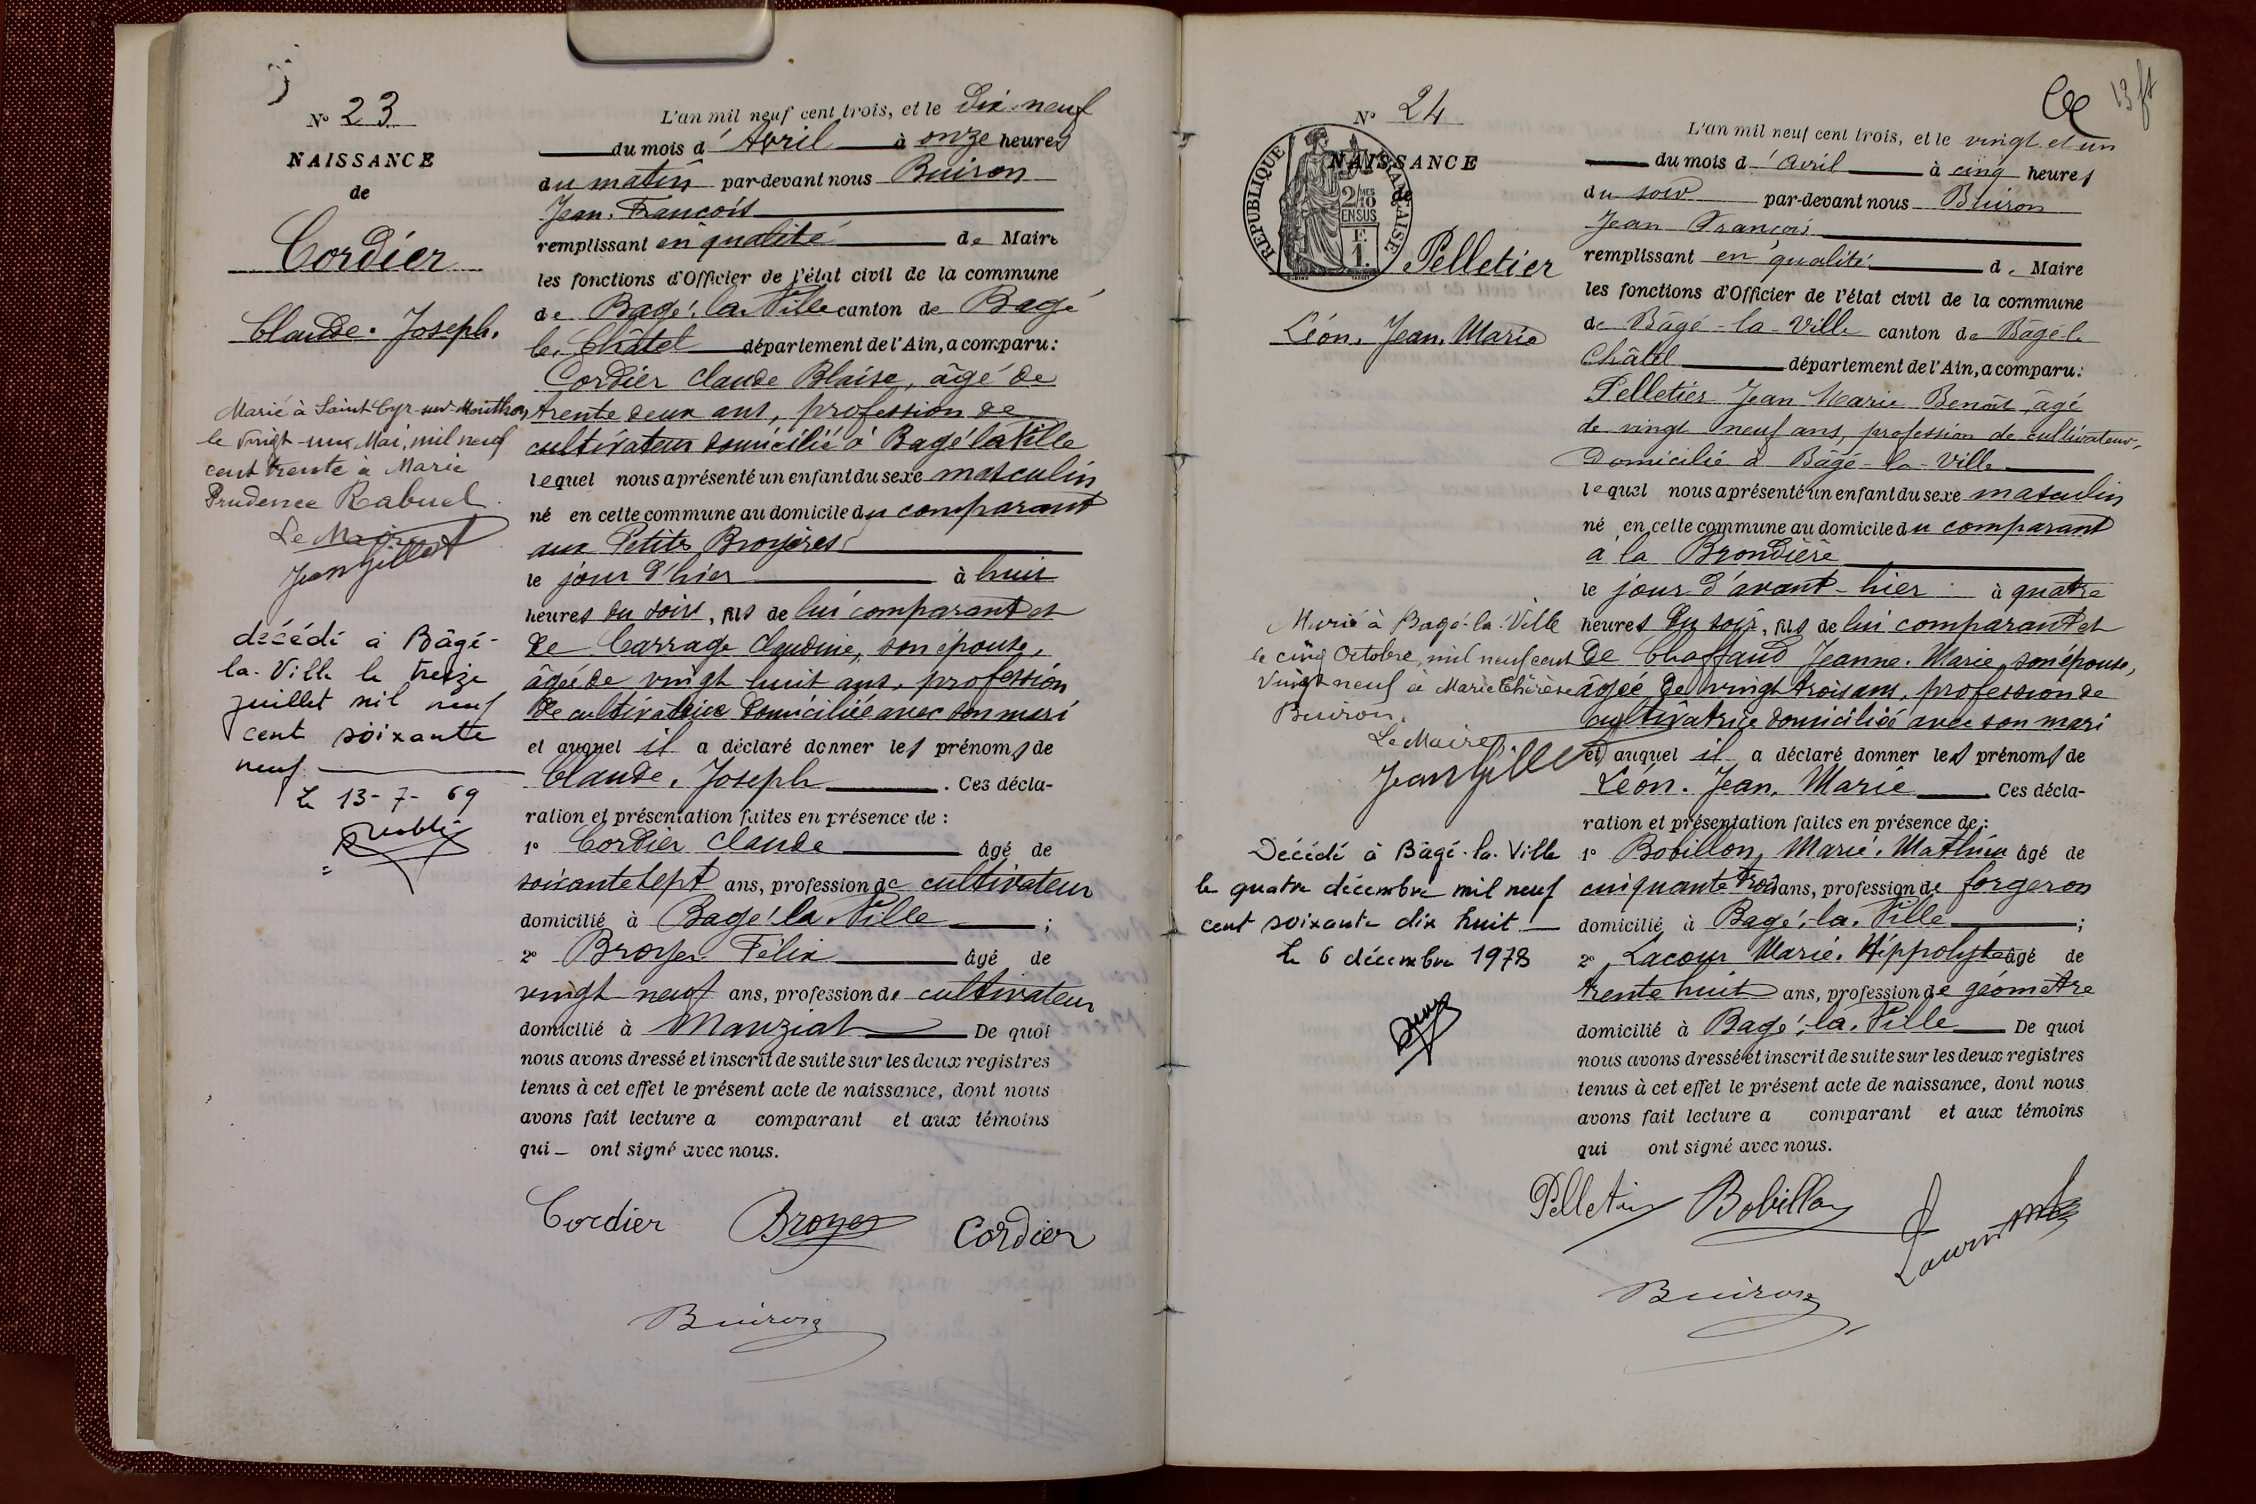 N° 23
NAISSANCE
de
Cordier
Claude. Joseph.
Marié à Saint Cyr-sur-Menthon
le vingt-un Mai, mil neuf
cent trente à Marie
Prudence Rabuel
Le Maire
Jean Gillet
décédé à Bâgé-
la-Ville le treize
juillet mil neuf
cent soixante
neuf
Le 13-7-69
L'an mil neuf cent trois, et le Dix-neuf
du mois d'Avril à onze heures
du matin par-devant nous Buiron
Jean. François
remplissant en qualité de Maire
les fonctions d'Officier de l'état civil de la commune
de Bagé-la-Ville canton de Bagé
le Châtel département de l'Ain, a comparu:
Cordier Claude Blaise, âgé de
trente deux ans, profession de
cultivateur domicilié à Bagé la Ville
lequel nous a présenté un enfant du sexe masculin
né en cette commune au domicile du comparant
aux Petites Broyères
le jour d'hier à huit
heures du soir, fils de lui comparant et
de Carrage Claudine, son épouse,
âgée de vingt huit ans, profession
de cultivatrice domiciliée avec son mari
et auquel il a déclaré donner les prénoms de
Claude. Joseph. Ces décla-
ration et présentation faites en présence de :
1° Cordier Claude âgé de
soixante sept ans, profession de cultivateur
domicilié à Bagé-la-Ville ;
2° Broyer Félix âgé de
vingt neuf ans, profession de cultivateur
domicilié à Manziat De quoi
nous avons dressé et inscrit de suite sur les deux registres
tenus à cet effet le présent acte de naissance, dont nous
avons fait lecture a comparant et aux témoins
qui — ont signé avec nous.
Cordier Broyer Cordier
Buiron
13 ft
N° 24
NAISSANCE
de
REPUBLIQUE FRANÇAISE
2/10 EN SUS
F.
1.
Pelletier
Léon, Jean, Marie
Marié à Bagé-la-Ville
le cinq Octobre, mil neuf cent
vingt neuf à Marie Thérèse
Buiron.
Le Maire
Jean Gillet
Décédé à Bâgé-la-Ville
le quatre décembre mil neuf
cent soixante dix huit
Le 6 décembre 1978
L'an mil neuf cent trois, et le vingt et un
du mois d'avril à cinq heures
du soir par-devant nous Buiron
Jean François
remplissant en qualité de Maire
les fonctions d'Officier de l'état civil de la commune
de Bâgé-la-Ville canton de Bâgé-le
Châtel département de l'Ain, a comparu:
Pelletier Jean Marie Benoît âgé
de vingt neuf ans, profession de cultivateur,
Domicilié à Bâgé-la-Ville
lequel nous a présenté un enfant du sexe masculin
né en cette commune au domicile du comparant
à la Brondière
le jour d'avant-hier à quatre
heures du soir, fils de lui comparant et
de Chaffaud Jeanne. Marie, son épouse,
âgée de vingt trois ans, profession de
cultivatrice domiciliée avec son mari
et auquel il a déclaré donner les prénoms de
Léon. Jean. Marie Ces décla-
ration et présentation faites en présence de :
1° Bobillon, Marie. Mathieu âgé de
cinquante trois ans, profession de forgeron
domicilié à Bagé-la-Ville ;
2° Lacour Marie. Hippolyte âgé de
trente huit ans, profession de géomètre
domicilié à Bagé-la-Ville De quoi
nous avons dressé et inscrit de suite sur les deux registres
tenus à cet effet le présent acte de naissance, dont nous
avons fait lecture a comparant et aux témoins
qui ont signé avec nous.
Pelletier Bobillon
Buiron